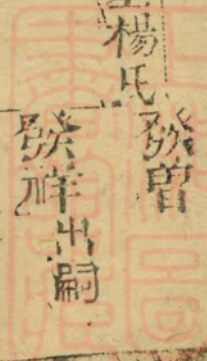 楊氏
發曾
發祥出嗣